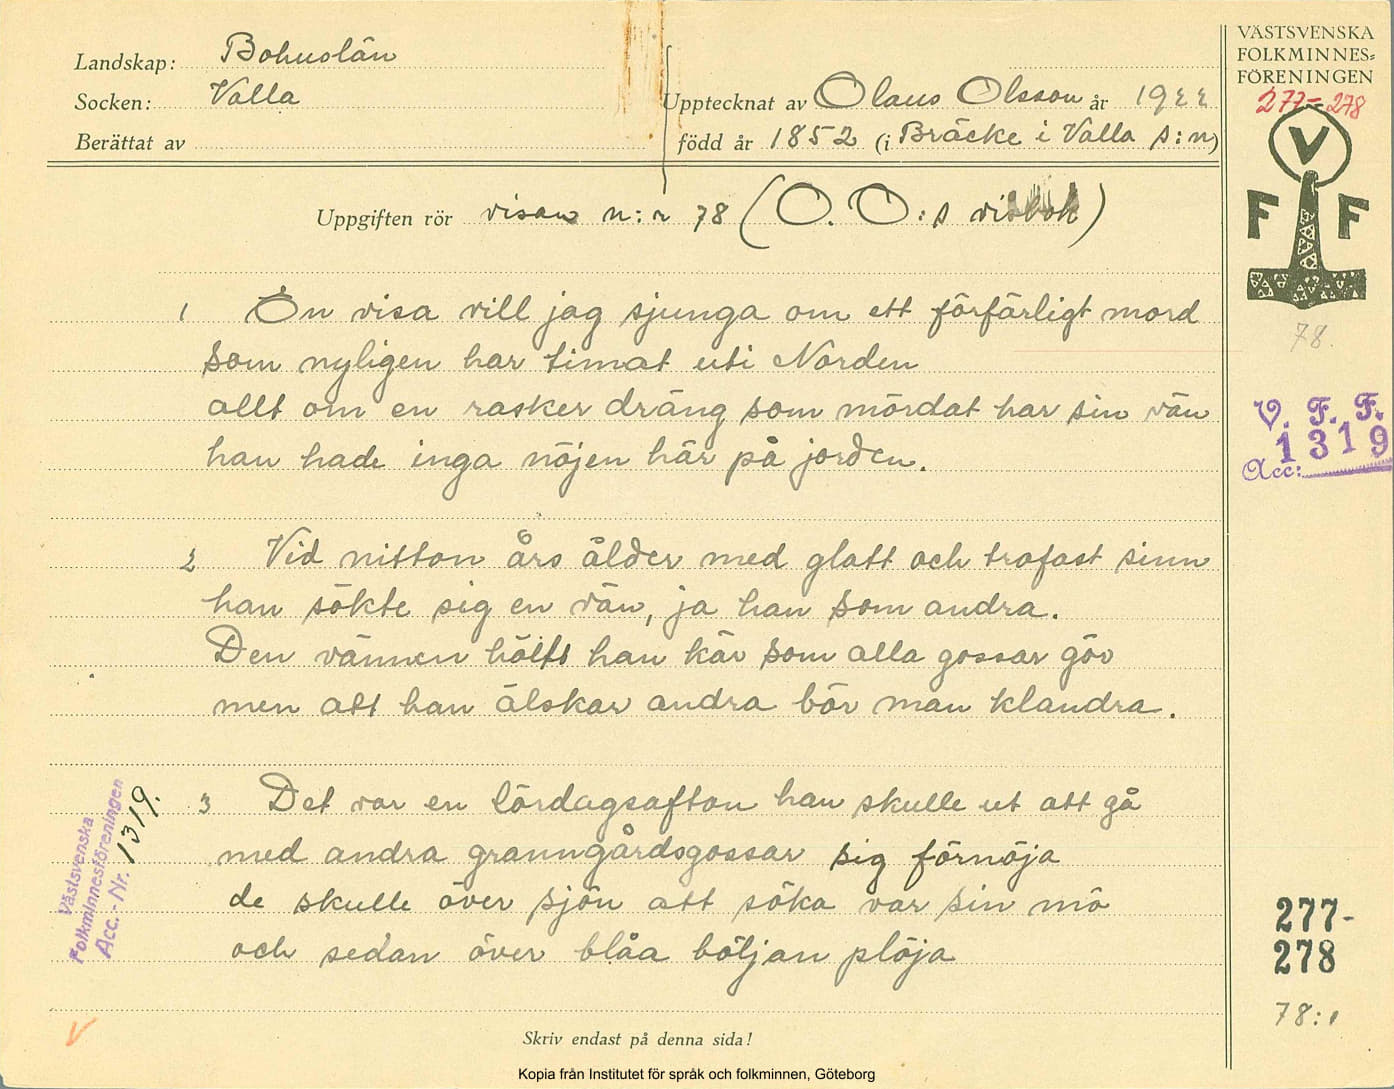 Landskap: Bohuslän
Socken: Valla
Berättat av
Upptecknat av Olaus Olsson år 1922
född år 1852 (i Bräcke i Valla s:n)
Uppgiften rör visan n:r 78 (O. O:s visbok)
1 En visa vill jag sjunga om ett förfärligt mord
som nyligen har timat uti Norden
allt om en rasker dräng som mördat har sin vän
han hade inga nöjen här på jorden.
2 Vid nitton års ålder med glatt och trofast sinn
han sökte sig en vän, ja han som andra.
Den vännen hölts han kär som alla gossar gör
men att han älskar andra bör man klandra.
3 Det var en lördagsafton han skulle ut att gå
med andra granngårdsgossar sig förnöja
de skulle över sjön att söka var sin mö
och sedan över blåa böljan plöja
Skriv endast på denna sida!
Kopia från Institutet för språk och folkminnen, Göteborg
VÄSTSVENSKA
FOLKMINNES=
FÖRENINGEN
277-278
V
F F
78.
V. F. F.
1319
Acc:
277-
278
78:1
Västsvenska
Folkminnesföreningen
Acc.-Nr. 1319.
V